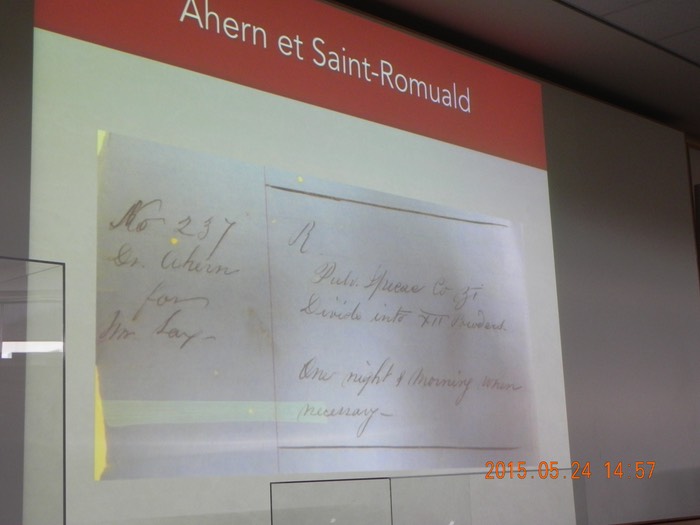 Ahern et Saint-Romuald
No 237
Dr. Ahern
for
Mr. Lay
R
Pulv. Ipecac Co
Divide into XII Powders
One night & morning when
necessary
2015.05.24 14:57